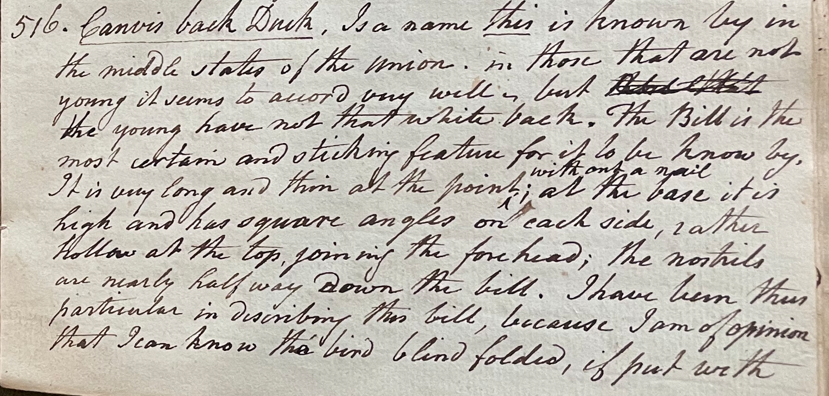 516. Canvis back Duck, Is a name this is known by in
the middle states of the union. in those that are not
young it seems to accord very well, but
the young have not that white back. The Bill is the
most certain and sticking feature for it to be know by.
with out a nail
It is very long and thin at the point; at the base it is
high and has square angles on each side, rather
hollow at the top, joining the forehead; the nostrils
are nearly half way down the bill. I have been thus
particular in describing this bill, because I am of opinion
that I can know the bird blind folded, if put with